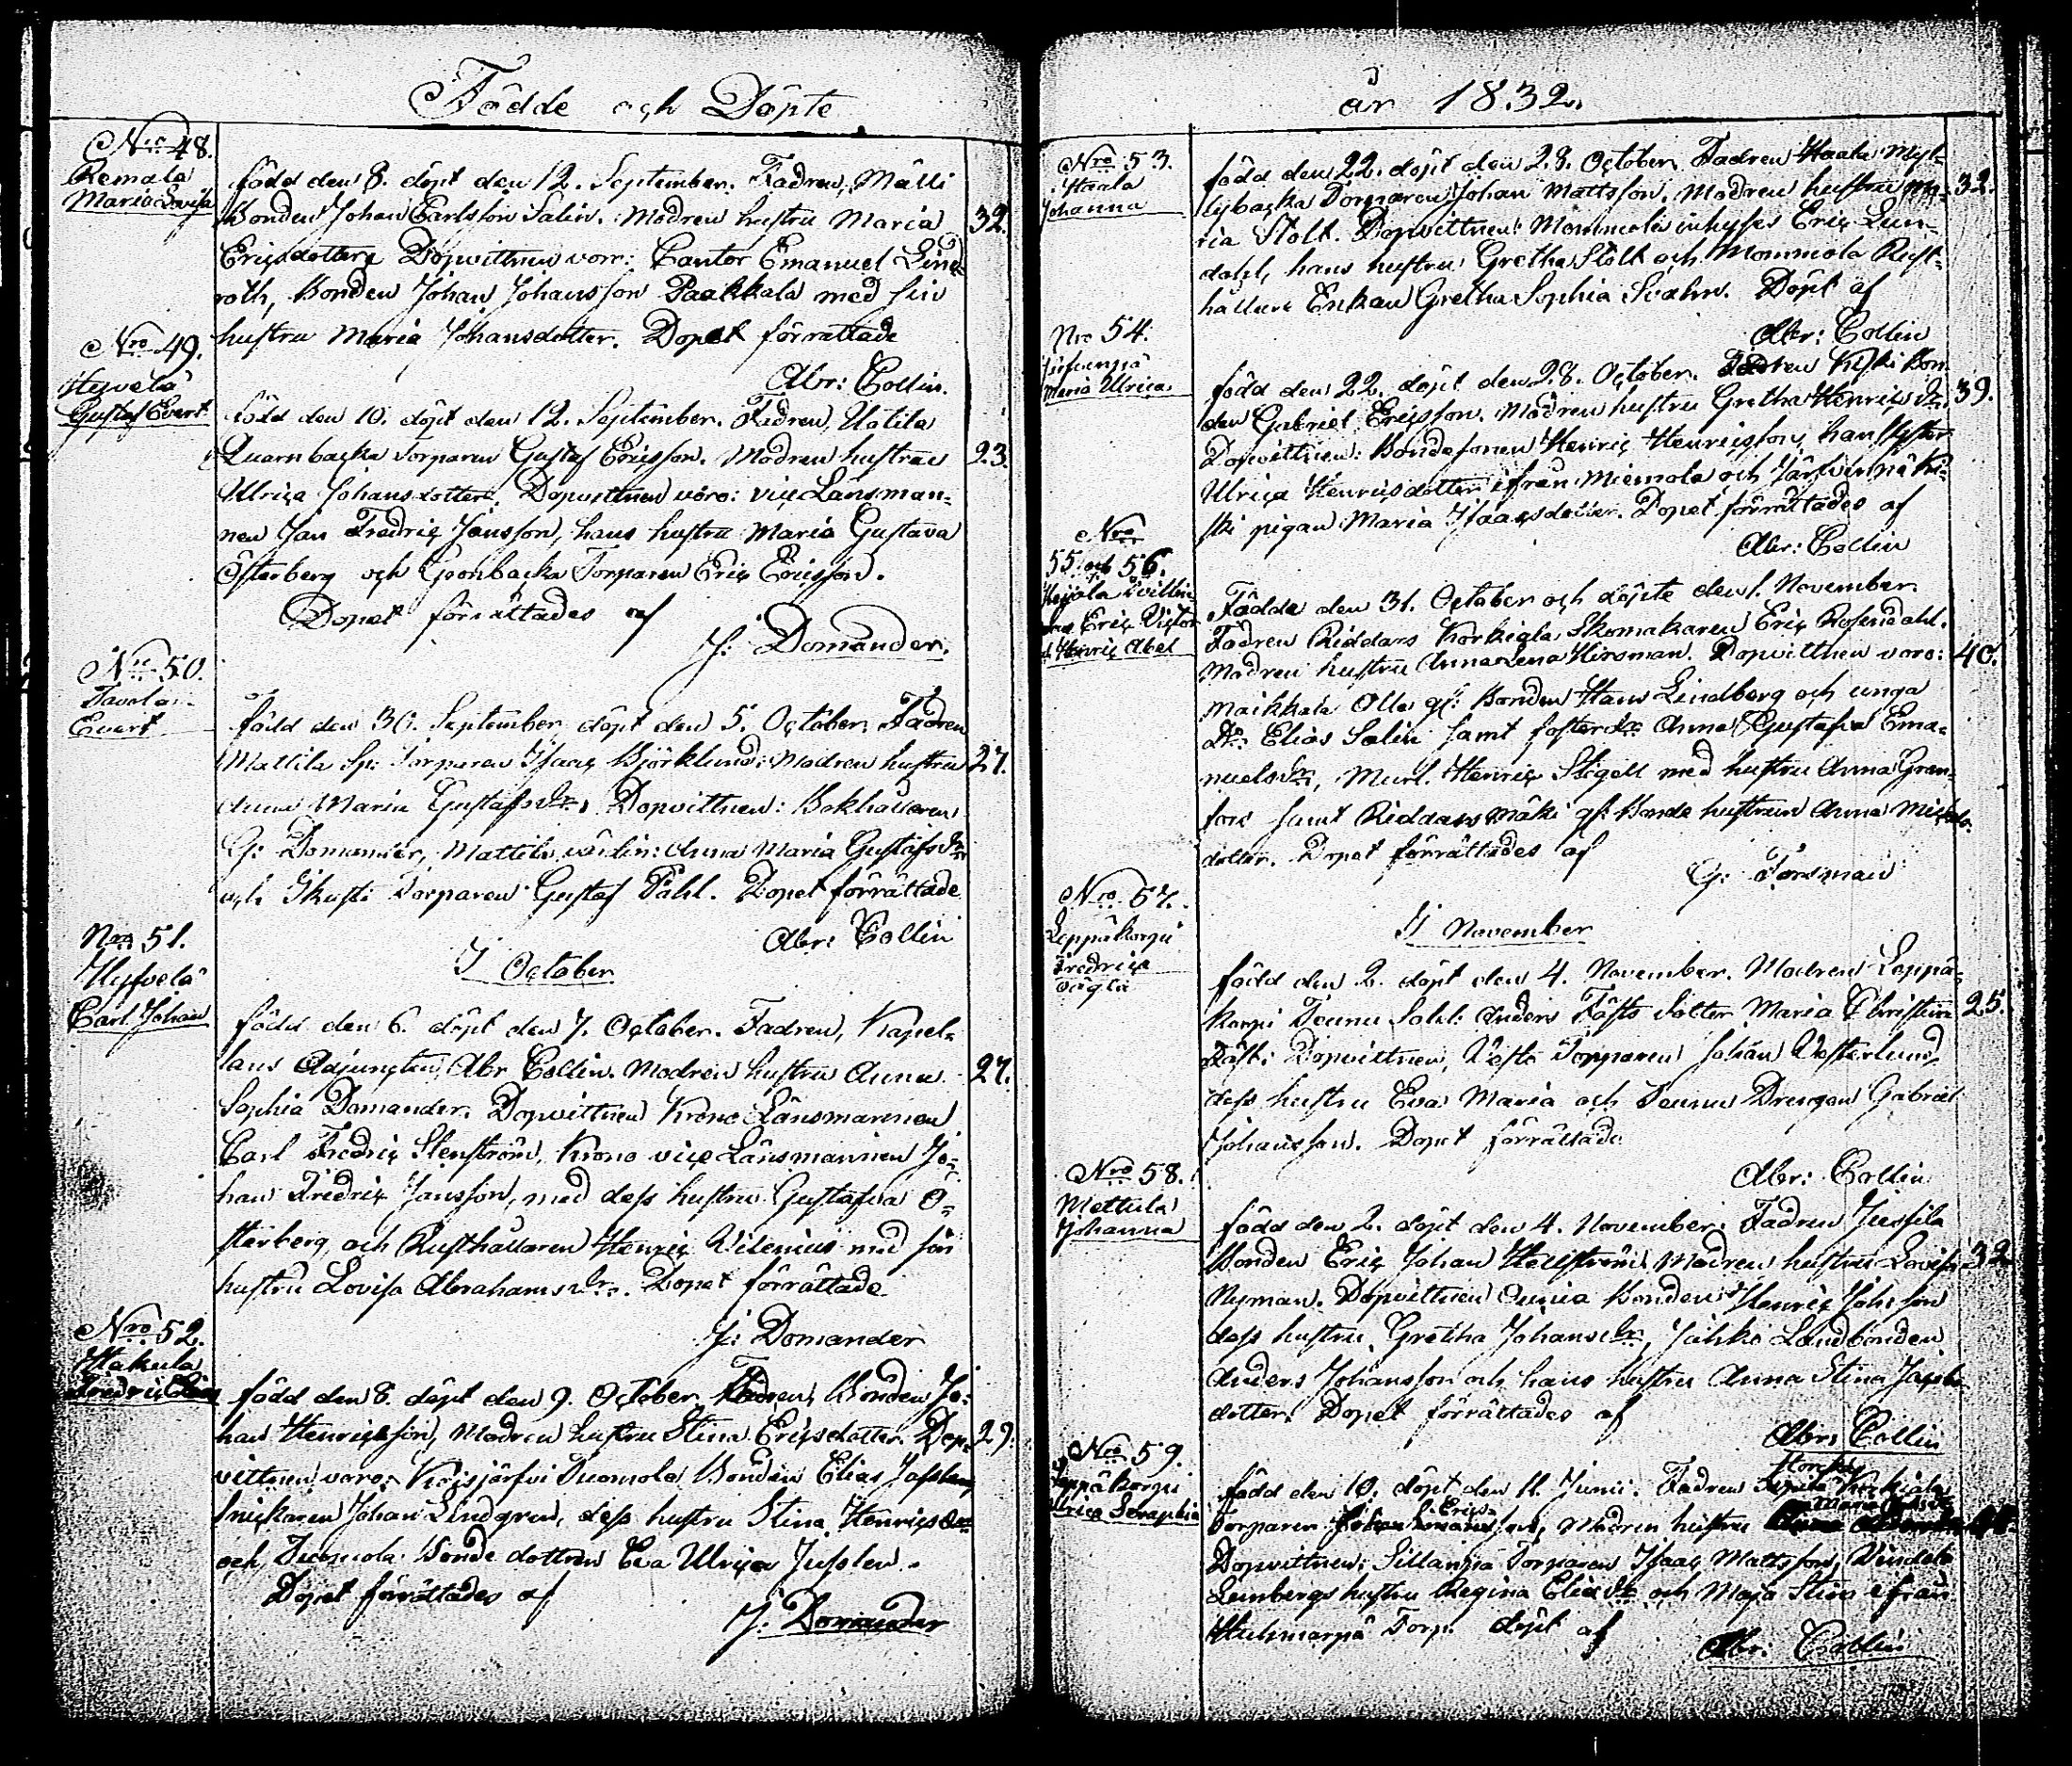 Födde och Döpte
Nro 48.
Remala
Maria Lovisa
född den 8. döpt den 12. September. Fadren, Mälli
Bonden Johan Carlsson Salin. Modren hustru Maria 32.
Ericsdotter, Dopvittnen voro: Cantor Emanuel Lind-
roth, Bonden Johan Johansson Paakkala med sin
hustru Maria Johansdotter. Dopet förrättade
Abr: Collin.
Nro 49.
Hyvelä
Gustaf Evert
född den 10. döpt den 12. September. Fadren, Uotila
Quarnbacka Torparen Gustaf Ericsson. Modren hustrun 23.
Ulrica Johansdotter, Dopvittnen voro: vice Länsman-
nen Jan Fredric Jansson, hans hustru Maria Gustava
Österberg och Torparen Eric Ericsson.
Dopet förrättades af
J: Domander.
Nro 50.
Tavola
Evert
född den 30. September, döpt den 5. October. Fadren
Mattila Sp: Torparen Isaac Björklund: Modren hustru 27.
Anna Maria Gustafsdr. Dopvittnen: Bokhållaren
G: Domander, Mattila värdin: Anna Maria Gustafsdr
och Torparen Gustaf Påhl. Dopet förrättade
Abr: Collin
I October
Nro 51.
Hyfvelä
Carl Johan
född den 6. döpt den 7. October. Fadren, Kapel-
lans Adjuncten Abr Collin. Modren hustru Anna 27.
Sophia Domander. Dopvittnen Krono Länsmannen
Carl Fredric Stenström, Krono vice Länsmannen Jo-
han Fredric Jansson, med dess hustru Gustafva Ö-
sterberg, och Rusthållaren Henric Vilenius med sin
hustru Lovisa Abrahamsdr. Dopet förrättade
J: Domander
Nro 52.
Hakula
Fredric
född den 8. döpt den 9. October, Fadren, Bonden Jo-
han Henricsson, Modren hustru Stina Ericsdotter. Dop- 29.
vittnen voro: Tuomola Bonden Elias
Snickaren Johan Lindgren, dess hustru Stina Henricsdr
och Tuomola Bonde dottren Eva Ulrica Jusslen.
Dopet förrättades af
J: Domander
år 1832.
Nro 53.
Haala
Johanna
född den 22. döpt den 28. October. Fadren Haala Myl-
lybacka Torparen Johan Mattsson. Modren hustru Ma- 32.
ria Stolt. Dopvittnen: Mommola inhyses Eric Lun-
dahl, hans hustru Gretha Stolt och Mommola Rust-
hållare Enkan Gretha Sophia Svahn. Döpt af
Abr: Collin
Nro 54.
Maria Ulrica
född den 22. döpt den 28. October. Fadren Kiski Bon-
den Gabriel Ericsson. Modren hustru Gretha Henricsdr. 39.
Dopvittnen: Bondesonen Henric Henricsson, hans syster
Ulrica Henricsdotter ifrån Miemola och Ki-
ski pigan Maria Isaacsdotter. Dopet förrättades af
Abr: Collin
Nro
55. och 56.
Eric Victor
och Henric Abel
Födde den 31. October och döpte den 1. November.
Fadren Riddars Korkiala Skomakaren Eric Rosendahl.
Modren hustru Anna Lena Hirsman. Dopvittnen voro: 40.
Maikkala Olla gf: Bonden Hans Lindberg och unga
Do: Elias Salin samt fosterdr. Anna Gustafva Ema-
nuelsdr, Murl. Henric Stigell med hustru Anna Gran-
fors samt Riddars Mäki gf: Bonde hustrun Anna Michels-
dotter. Dopet förrättades af
G: Forsman
I November
Nro 57.
Leppäkorpi
Fredrica
oägta
född den 2. döpt den 4. November. Modren Leppä-
korpi Teunu Sold: Anders Fästs dotter Maria Christina 25.
Fäst: Dopvittnen, Torparen Johan Vesterlund,
dess hustru Eva Maria och Teunu Drengen Gabriel
Johansson. Dopet förrättade
Abr: Collin
Nro 58.
Mettula
Johanna
född den 2. döpt den 4. November. Fadren Jussila
Bonden Eric Johan Hellström, Modren hustru Lovisa 32
Nyman. Dopvittnen Bonden Henric Johsson
dess hustru Gretha Johansdr, Jähki Landbonden
Anders Johansson och hans hustru Anna Stina Jacobs-
dotter. Dopet förrättades af
Abr: Collin
Nro 59.
Leppäkorpi
Ulrica Seraphia
född den 10. döpt den 11. Junii. Fadren Korkiala
Torparen Ericsson, Modren hustru Maria
Dopvittnen: Sillanpä Torparen Isaac Mattsson,
Lembergs hustru Regina Eliaedr och Maja Stina ifrån
Torp. döpt af
Abr: Collin